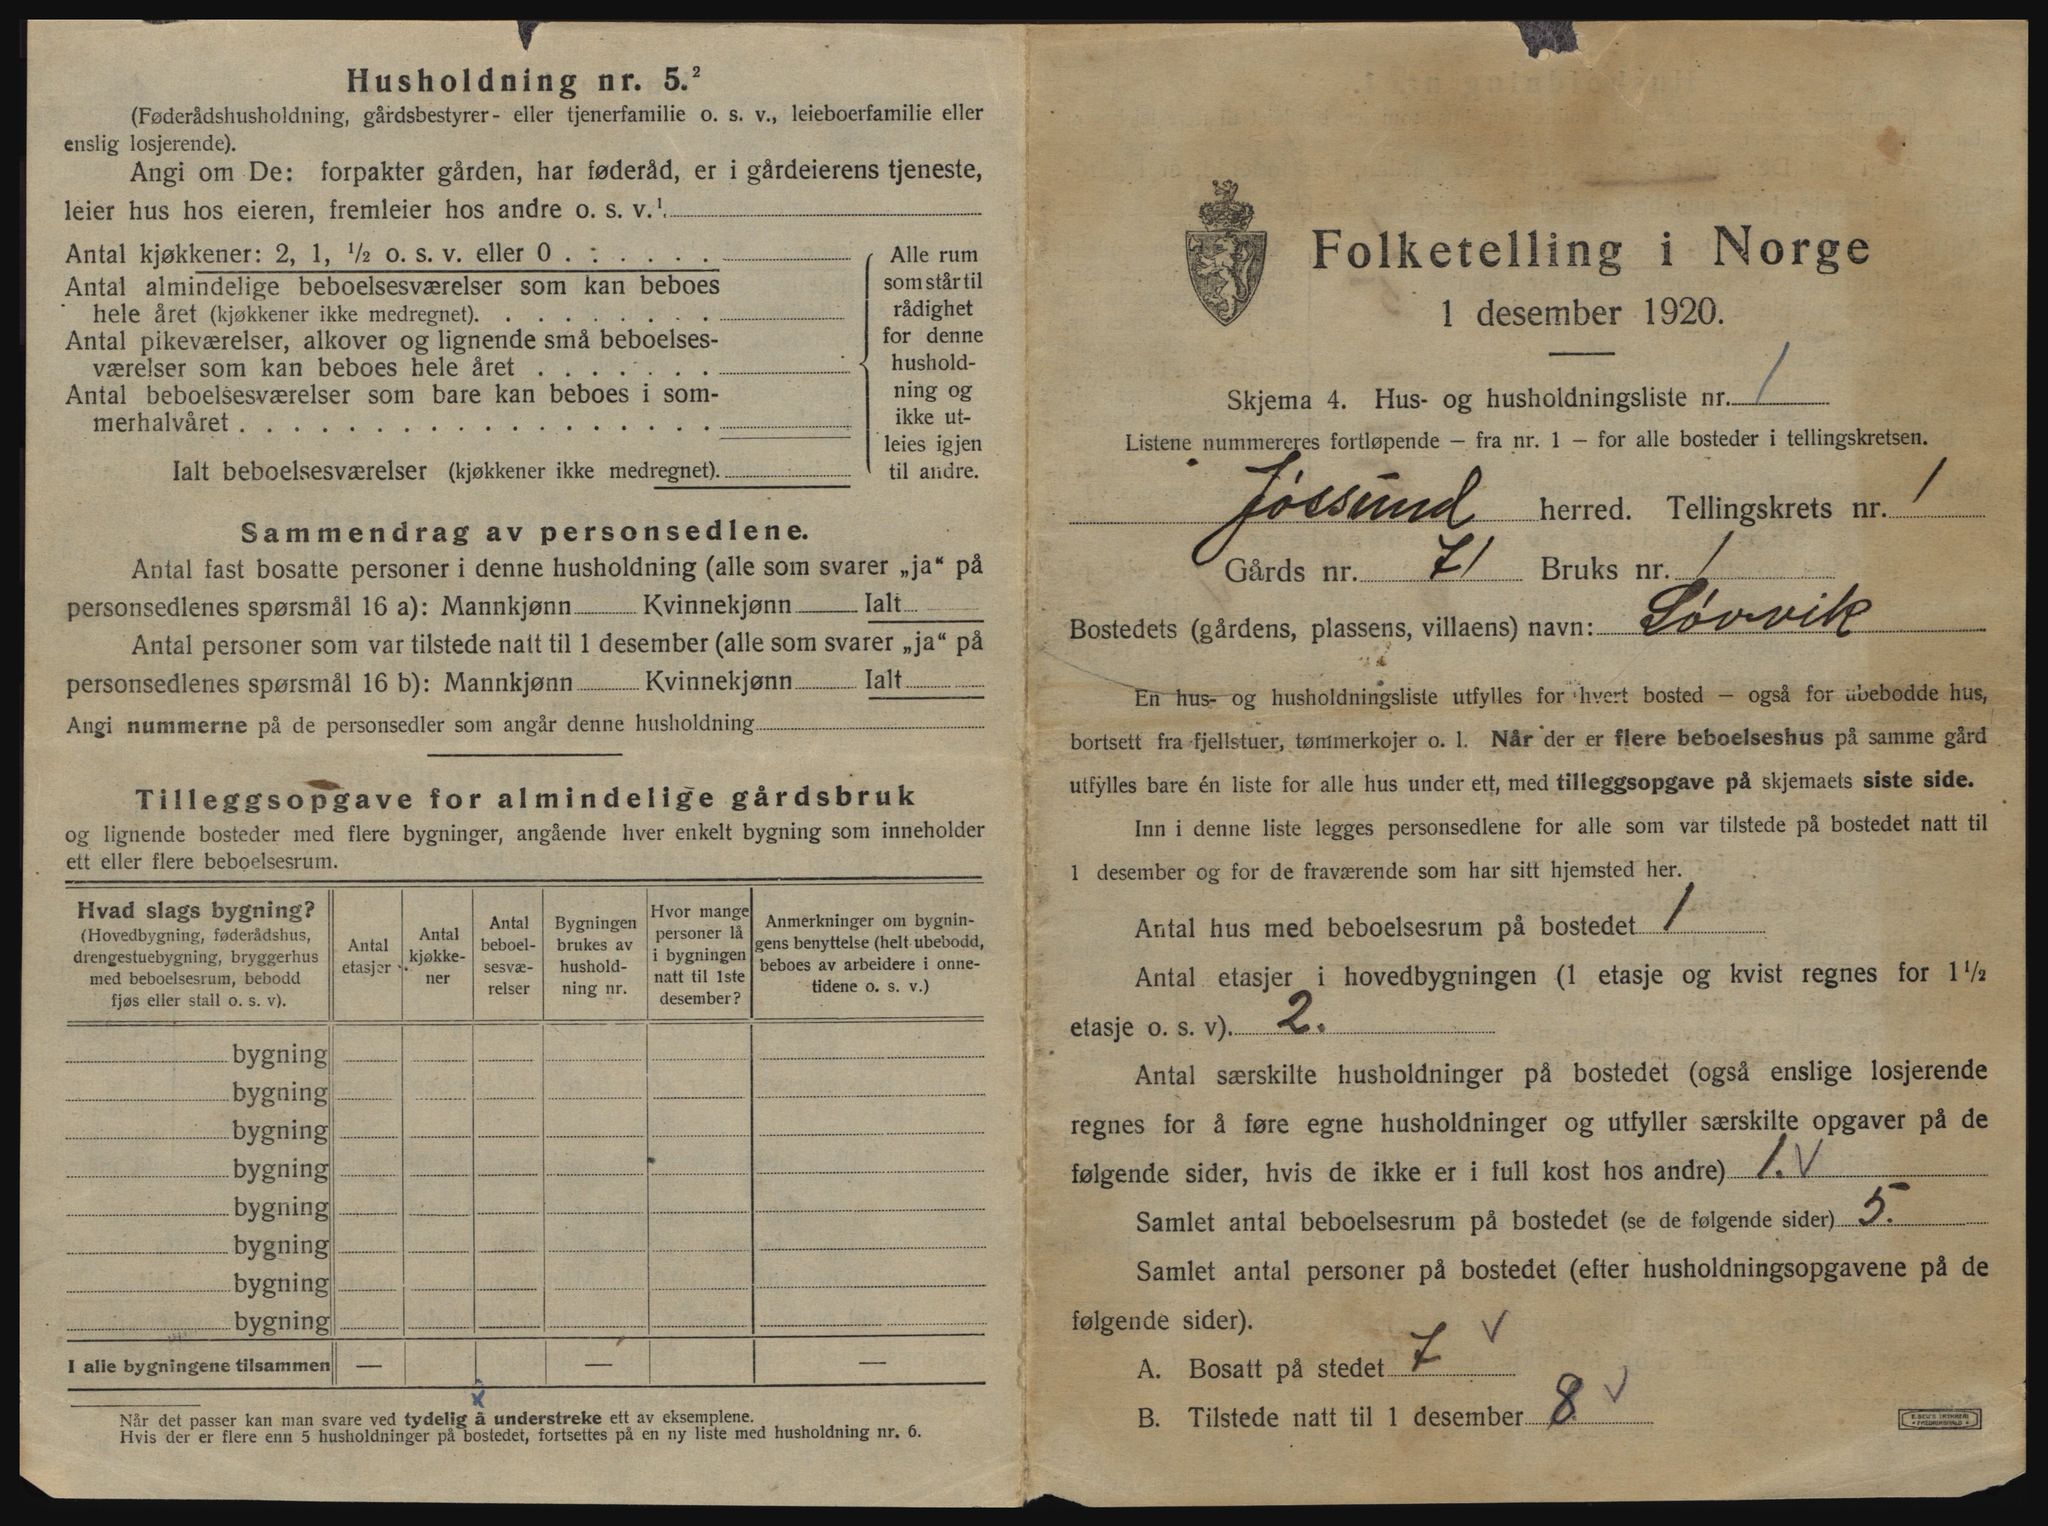 Husholdning nr. 5.²
(Føderådshusholdning, gårdsbestyrer- eller tjenerfamilie o. s. v., leieboerfamilie eller
enslig losjerende).
Angi om De: forpakter gården, har føderåd, er i gårdeierens tjeneste,
leier hus hos eieren, fremleier hos andre o. s. v.¹
Antal kjøkkener: 2, 1, ½ o. s. v. eller 0 . . . . . .
Antal almindelige beboelsesværelser som kan beboes
hele året (kjøkkener ikke medregnet). . . . . . . . .
Antal pikeværelser, alkover og lignende små beboelses-
værelser som kan beboes hele året . . . . . . .
Antal beboelsesværelser som bare kan beboes i som-
merhalvåret . . . . . . . . . . . . . . . . . .
Ialt beboelsesværelser (kjøkkener ikke medregnet).
Alle rum
som står til
rådighet
for denne
hushold-
ning og
ikke ut-
leies igjen
til andre.
Sammendrag av personsedlene.
Antal fast bosatte personer i denne husholdning (alle som svarer „ja“ på
personsedlenes spørsmål 16 a): Mannkjønn Kvinnekjønn Ialt
Antal personer som var tilstede natt til 1 desember (alle som svarer „ja“ på
personsedlenes spørsmål 16 b): Mannkjønn Kvinnekjønn Ialt
Angi nummerne på de personsedler som angår denne husholdning
Tilleggsopgave for almindelige gårdsbruk
og lignende bosteder med flere bygninger, angående hver enkelt bygning som inneholder
ett eller flere beboelsesrum.
Hvad slags bygning?
(Hovedbygning, føderådshus,
drengestuebygning, bryggerhus
med beboelsesrum, bebodd
fjøs eller stall o. s. v).
Antal
etasjer
Antal
kjøkke-
ner
Antal
beboel-
sesvæ-
relser
Bygningen
brukes av
hushold-
ning nr.
Hvor mange
personer lå
i bygningen
natt til 1ste
desember?
Anmerkninger om bygnin-
gens benyttelse (helt ubebodd,
beboes av arbeidere i onne-
tidene o. s. v.)
bygning
bygning
bygning
bygning
bygning
bygning
bygning
bygning
I alle bygningene tilsammen — — —
x
Når det passer kan man svare ved tydelig å understreke ett av eksemplene.
Hvis der er flere enn 5 husholdninger på bostedet, fortsettes på en ny liste med husholdning nr. 6.
Folketelling i Norge
1 desember 1920.
Skjema 4. Hus- og husholdningsliste nr. 1
Listene nummereres fortløpende — fra nr. 1 — for alle bosteder i tellingskretsen.
Jøssund herred. Tellingskrets nr. 1
Gårds nr. 71 Bruks nr. 1
Bostedets (gårdens, plassens, villaens) navn: Løvvik
En hus- og husholdningsliste utfylles for hvert bosted — også for ubebodde hus,
bortsett fra fjellstuer, tømmerkojer o. l. Når der er flere beboelseshus på samme gård
utfylles bare én liste for alle hus under ett, med tilleggsopgave på skjemaets siste side.
Inn i denne liste legges personsedlene for alle som var tilstede på bostedet natt til
1 desember og for de fraværende som har sitt hjemsted her.
Antal hus med beboelsesrum på bostedet 1
Antal etasjer i hovedbygningen (1 etasje og kvist regnes for 1½
etasje o. s. v). 2.
Antal særskilte husholdninger på bostedet (også enslige losjerende
regnes for å føre egne husholdninger og utfyller særskilte opgaver på de
følgende sider, hvis de ikke er i full kost hos andre) 1. V
Samlet antal beboelsesrum på bostedet (se de følgende sider) 5.
Samlet antal personer på bostedet (efter husholdningsopgavene på de
følgende sider).
A. Bosatt på stedet 7 V
B. Tilstede natt til 1 desember 8 V